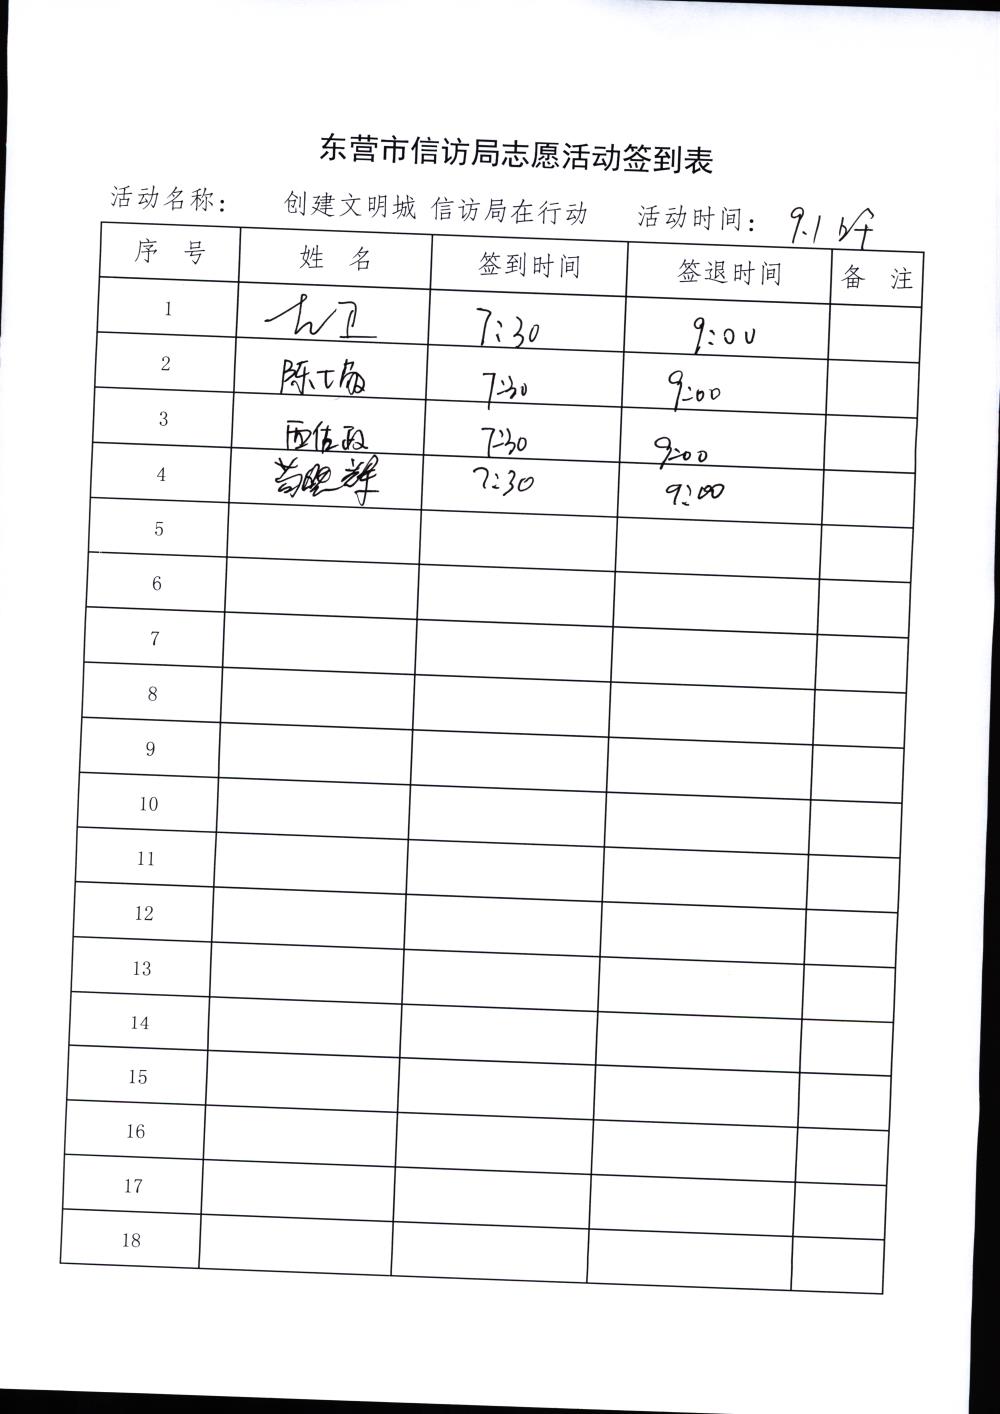 东营市信访局志愿活动签到表
活动名称： 创建文明城 信访局在行动 活动时间： 9.1
序 号 姓 名 签到时间 签退时间 备 注
1 卫 7:30 9:00
2 陈 7:30 9:00
3 7:30 9:00
4 7:30 9:00
5
6
7
8
9
10
11
12
13
14
15
16
17
18